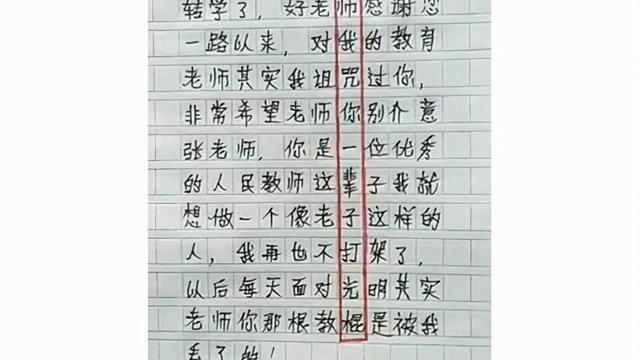 转学了，好老师感谢您
一路以来，对我的教育
老师其实我诅咒过你，
非常希望老师你别介意
张老师，你是一位优秀
的人民教师这辈子我就
想做一个像老子这样的
人，我再也不打架了，
以后每天面对光明其实
老师你那根教棍是被我
丢了的！